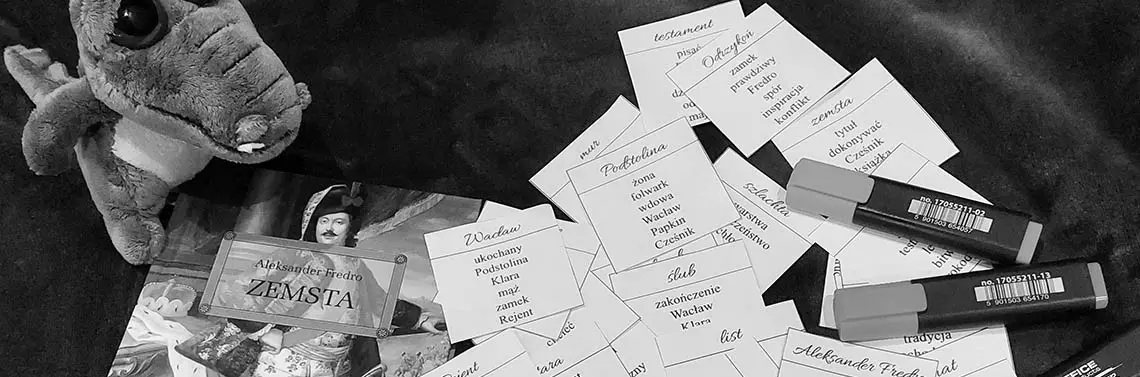 testament
pisać
Odrzykoń
zamek
prawdziwy
Fredro
spór
inspiracja
konflikt
zemsta
tytuł
dokonywać
Cześnik
książka
mur
Podstolina
żona
folwark
wdowa
Wacław
Papkin
Cześnik
szlachta
Wacław
ukochany
Podstolina
Klara
mąż
zamek
Rejent
ślub
zakończenie
Wacław
Klara
list
Aleksander Fredro
ZEMSTA
no. 17055211-02
5 901503 654057
no. 17055211-13
5 901503 654170
tradycja
Aleksander Fredro